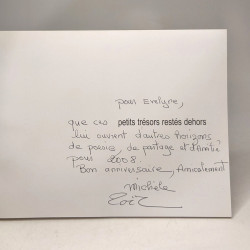 pour Evelyne,
que ces petits trésors restés dehors
lui ouvrent d'autres horizons
de poésie, de partage et d'Amitié
pour 2008.
Bon anniversaire, Amicalement
Michèle
Zoé